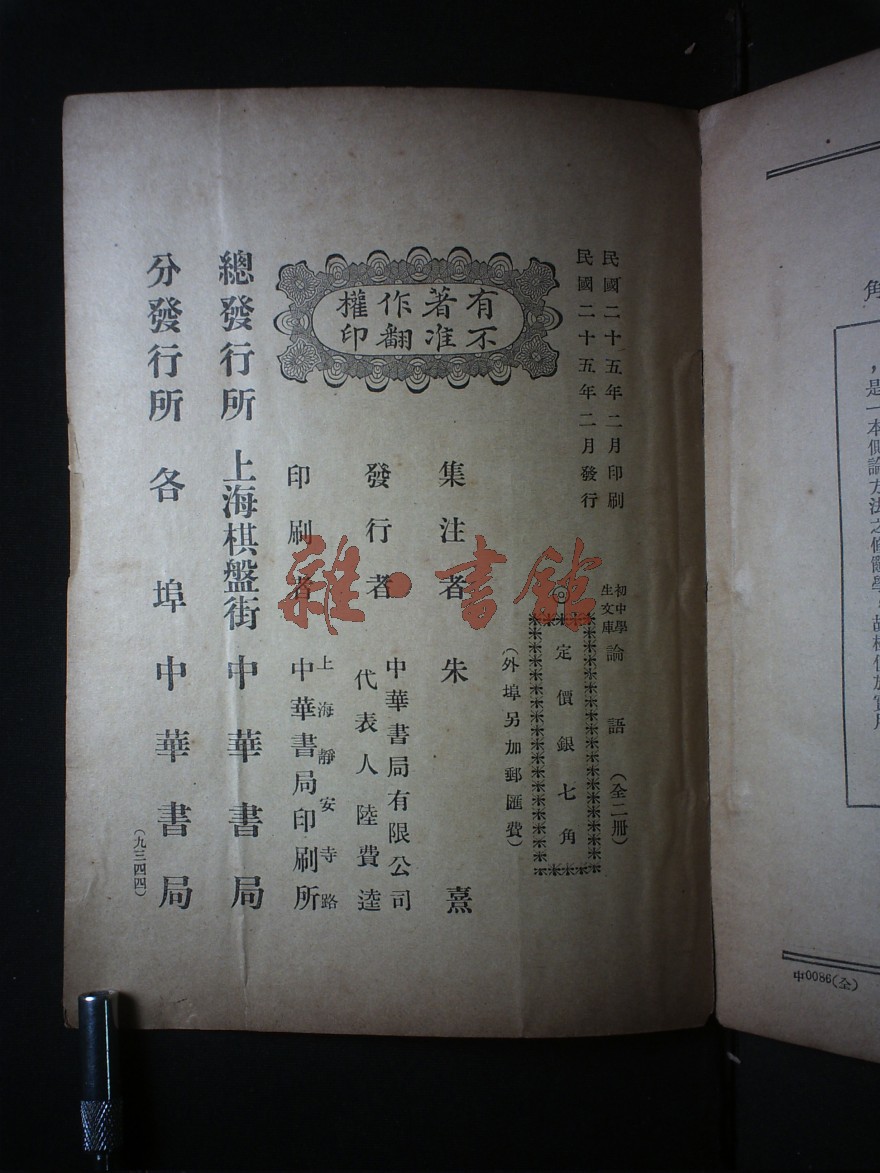 民國二十五年二月印刷
民國二十五年二月發行
初中學
生文庫
論語
(全二冊)
定價銀七角
(外埠另加郵匯費)
有著作權
不准翻印
集注者 朱熹
發行者
中華書局有限公司
代表人 陸費逵
印刷者
上海靜安寺路
中華書局印刷所
總發行所 上海棋盤街 中華書局
分發行所 各埠中華書局
(九三四四)
雜·書館
角
中0086(全)